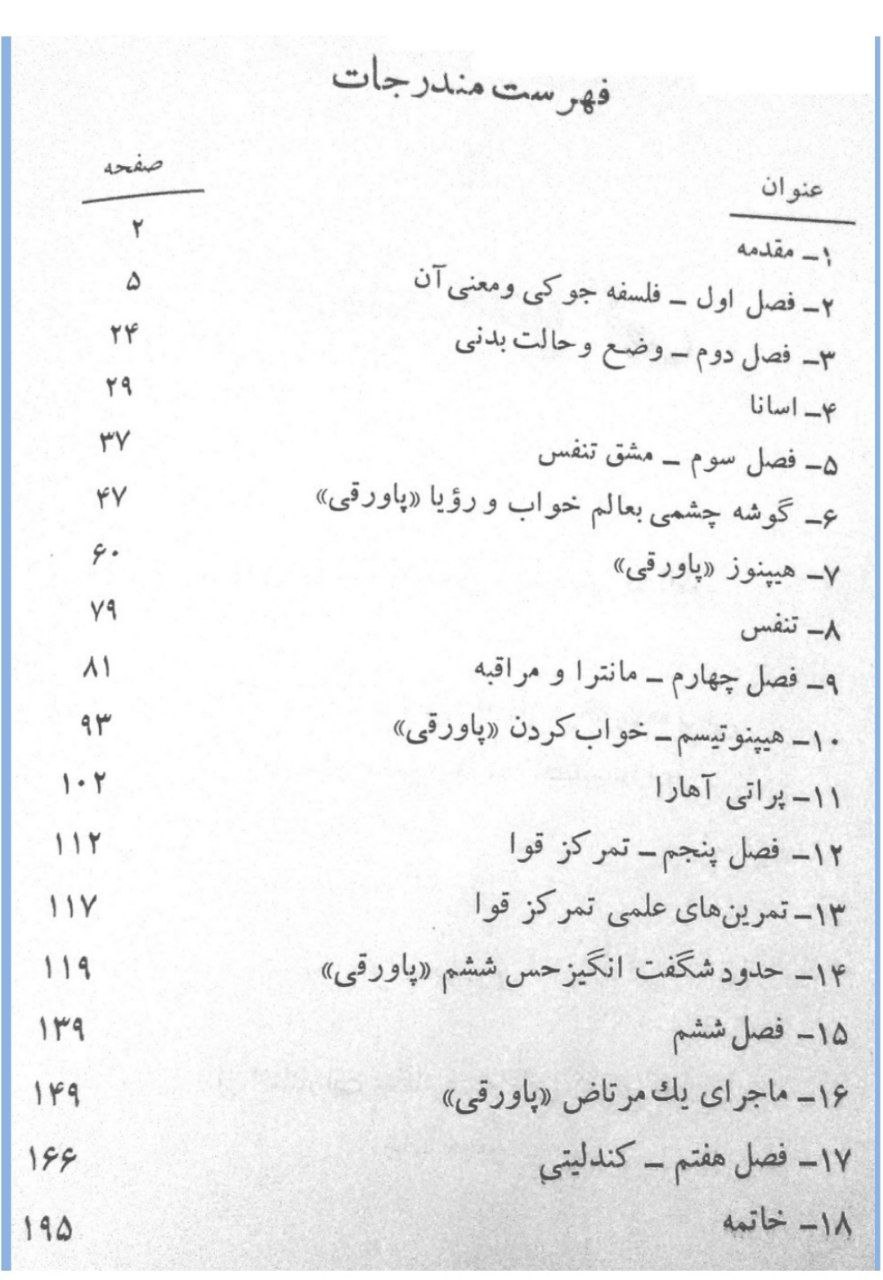 فهرست مندرجات
عنوان صفحه
۱ــ مقدمه ۲
۲ــ فصل اول ــ فلسفه جوکی ومعنی آن ۵
۳ــ فصل دوم ــ وضع وحالت بدنی ۲۴
۴ــ اسانا ۲۹
۵ــ فصل سوم ــ مشق تنفس ۳۷
۶ــ گوشه چشمی بعالم خواب و رؤیا «پاورقی» ۴۷
۷ــ هیپنوز «پاورقی» ۶۰
۸ــ تنفس ۷۹
۹ــ فصل چهارم ــ مانترا و مراقبه ۸۱
۱۰ــ هیپنوتیسم ــ خواب کردن «پاورقی» ۹۳
۱۱ــ پراتی آهارا ۱۰۲
۱۲ــ فصل پنجم ــ تمرکز قوا ۱۱۲
۱۳ــ تمرین‌های علمی تمرکز قوا ۱۱۷
۱۴ــ حدود شگفت انگیز حس ششم «پاورقی» ۱۱۹
۱۵ــ فصل ششم ۱۳۹
۱۶ــ ماجرای یك مرتاض «پاورقی» ۱۴۹
۱۷ــ فصل هفتم ــ کندلیتی ۱۶۶
۱۸ــ خاتمه ۱۹۵